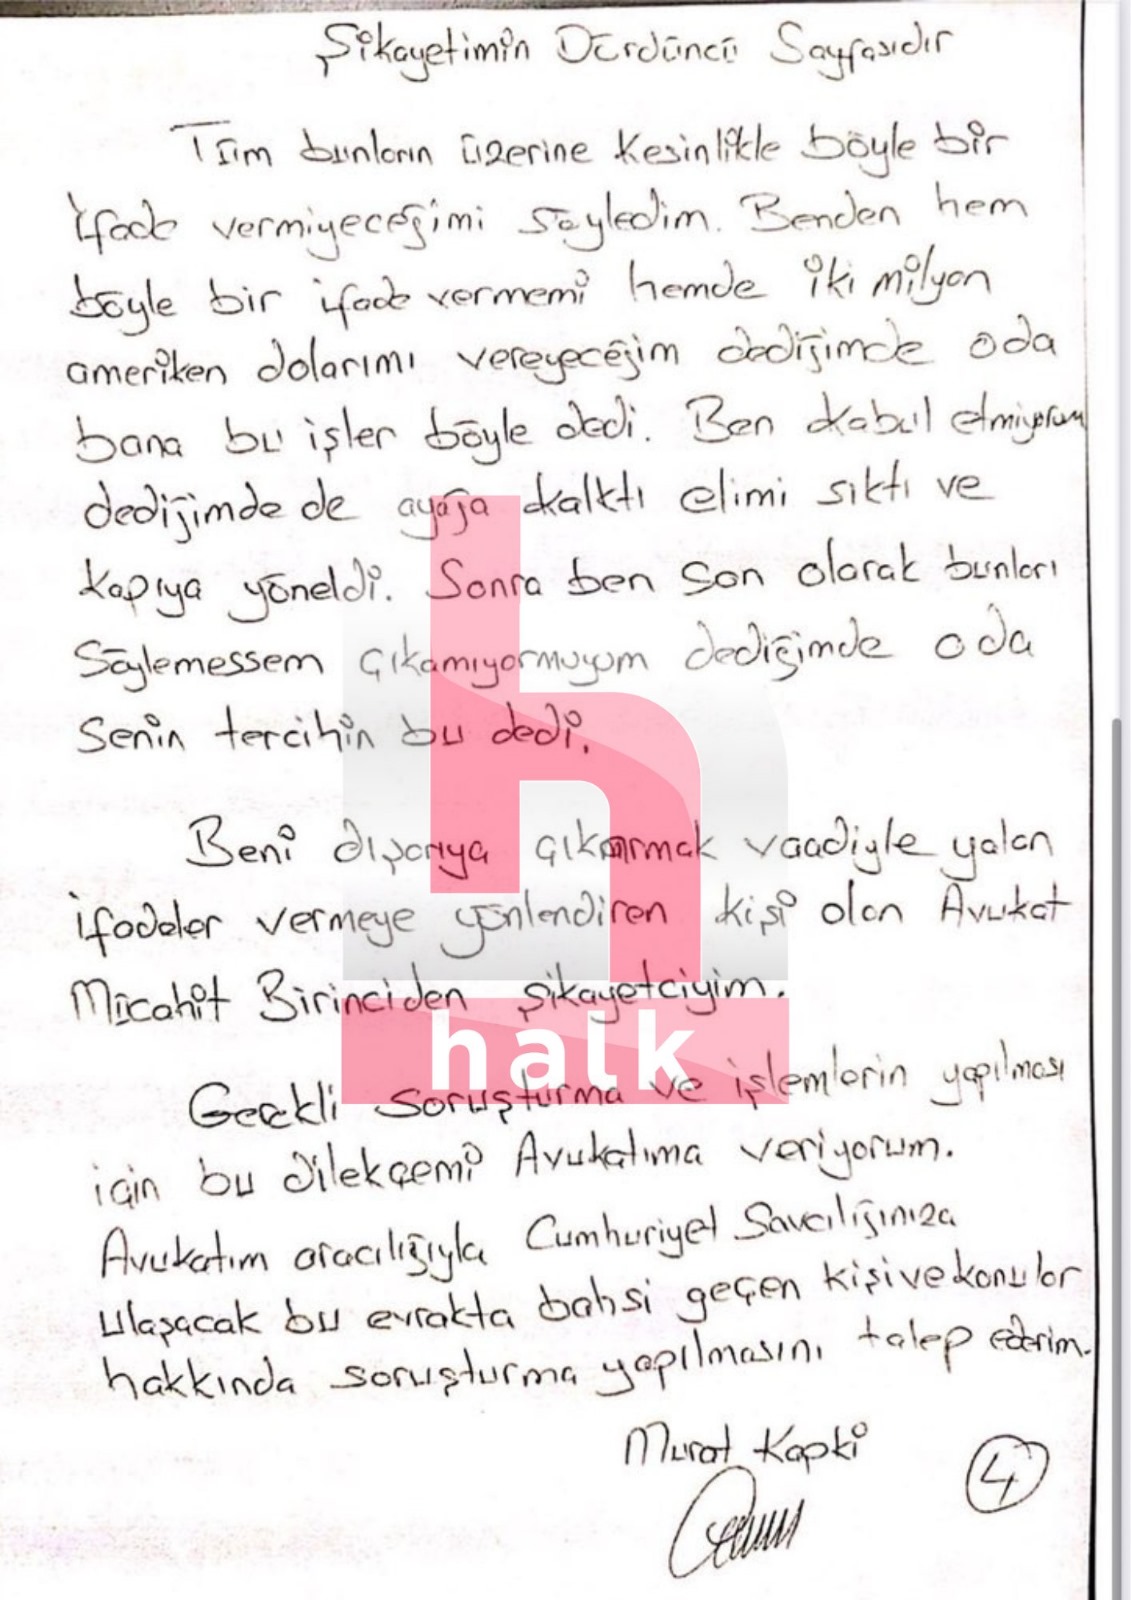 Şikayetimin Dördüncü Sayfasıdır
Tüm bunların üzerine kesinlikle böyle bir
ifade vermiyeceğimi söyledim. Benden hem
böyle bir ifade vermemi hemde iki milyon
ameriken dolarımı vereyeceğim dediğimde oda
bana bu işler böyle dedi. Ben kabul etmiyorum
dediğimde de ayağa kalktı elimi sıktı ve
kapıya yöneldi. Sonra ben son olarak bunları
Söylemessem çıkamıyormuyum dediğimde oda
Senin tercihin bu dedi.
Beni dışarıya çıkarmak vaadiyle yalan
ifadeler vermeye yönlendiren kişi olan Avukat
Mücahit Birinciden şikayetciyim.
halk
Gerekli soruşturma ve işlemlerin yapılması
için bu dilekçemi Avukatıma veriyorum.
Avukatım aracılığıyla Cumhuriyet Savcılığınıza
ulaşacak bu evrakta bahsi geçen kişi ve konular
hakkında soruşturma yapılmasını talep ederim.
Murat Kapki
4